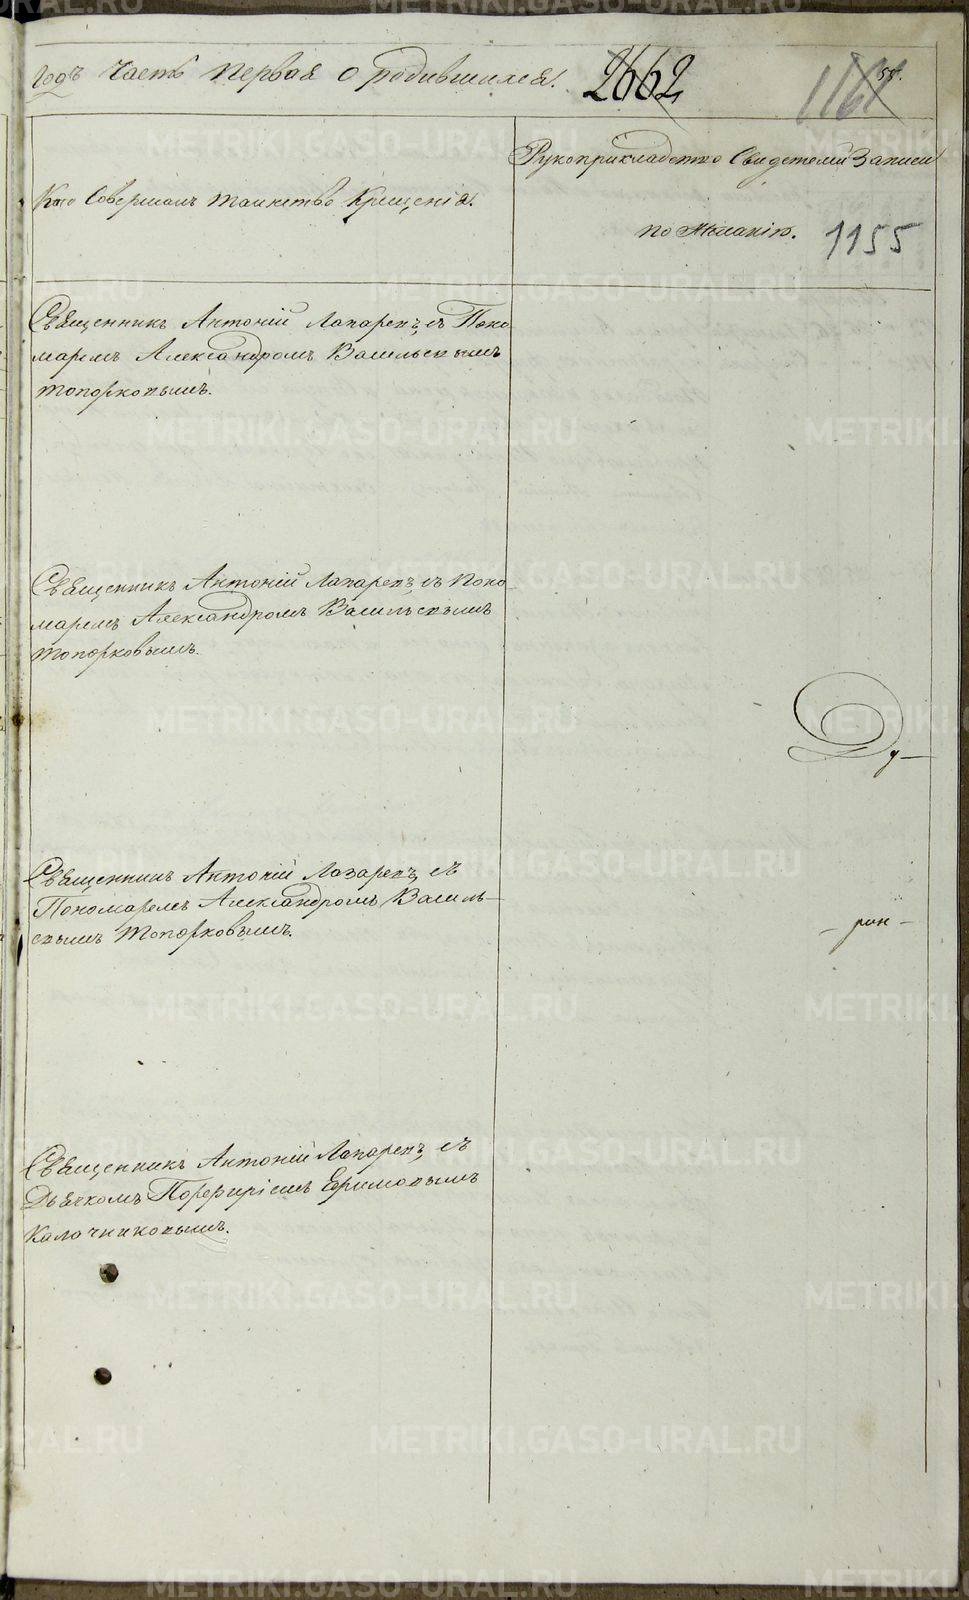 годъ часть первая о родившихся.
2662
1161
1155
Кто совершалъ таинство крещенія.
Рукоприкладство свидетелей записи
по желанію.
Священникъ Антоній Лапаревъ, съ Поно
маремъ Александромъ Васильевымъ
Топорковымъ.
Священникъ Антоній Лапаревъ, съ Поно
маремъ Александромъ Васильевымъ
Топорковымъ.
Священникъ Антоній Лазаревъ, съ
Пономаремъ Александромъ Василь-
евымъ Топорковымъ.
Священникъ Антоній Лапаревъ, съ
Дьячкомъ Порфиріемъ Ефимовымъ
Калочниковымъ.
METRIKI.GASO-URAL.RU